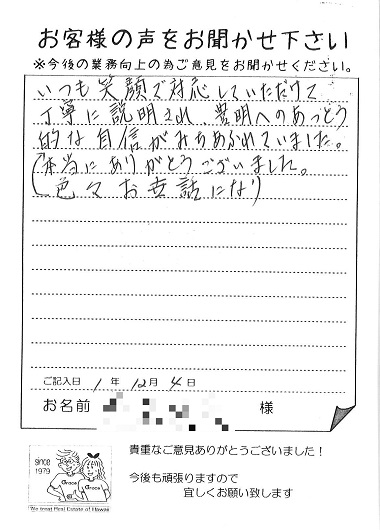 お客様の声をお聞かせ下さい
※今後の業務向上の為ご意見をお聞かせください。
いつも笑顔で対応していただけて
丁寧に説明され、豊明へのあっとう
的な自信がみちあふれていました。
本当にありがとうございました。
色々お世話になり
ご記入日 1年 12月 4日
お名前 様
since
1979
Grace
Grace
"We treat Real Estate of Hawaii"
貴重なご意見ありがとうございました！
今後も頑張りますので
宜しくお願い致します